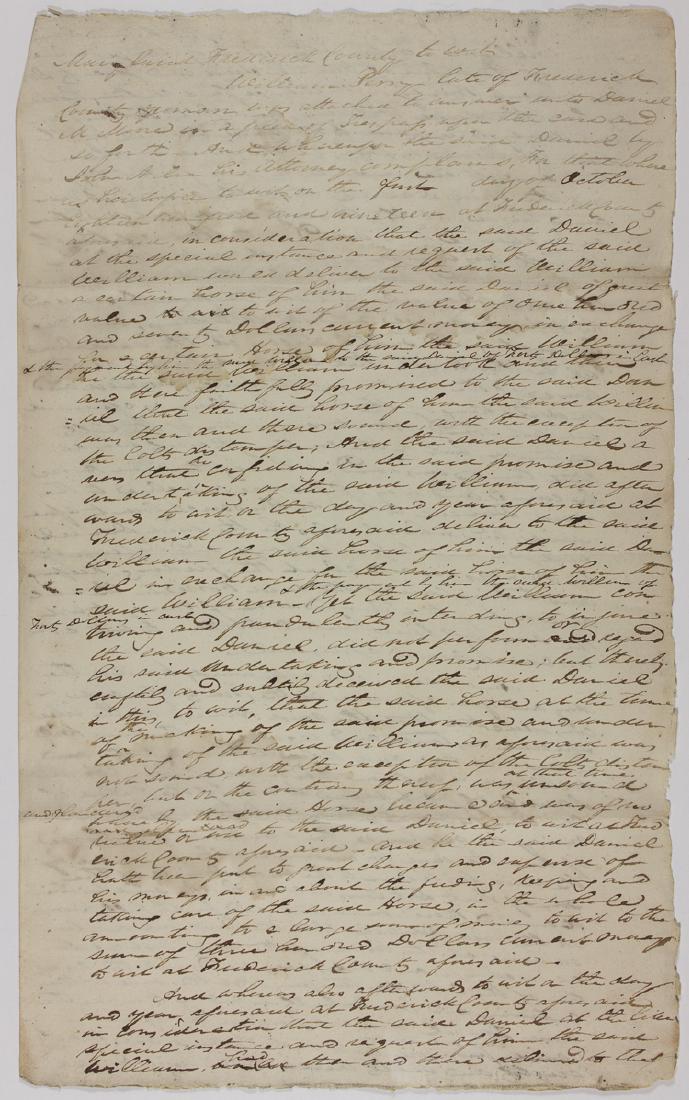 Maryland Frederick County to wit
William Perry late of Frederick
County yeoman was attached to answer unto Daniel
in a plea of Trespass upon the case and
so forth And whereupon the said Daniel by
John his Attorney complains, For that where
as heretofore to wit on the first day of October
Eighteen hundred and nineteen at Frederick County
aforesaid, in consideration that the said Daniel
at the special instance and request of the said
William would deliver to the said William
a certain horse of him the said Daniel of great
value to wit of the value of One hundred
and seventy Dollars current money, in exchange
for a certain Horse of him the said William
& the payment by him the said William to the said Daniel of Forty Dollars in Cash
he the said William undertook and then
and there faithfully promised to the said Dan
=iel that the said horse of him the said William
was then and there sound with the exception of
the Colts distemper; And the said Daniel a
vers that he confiding in the said promise and
undertaking of the said William, did after
wards to wit on the day and year aforesaid at
Frederick County aforesaid deliver to the said
William the said horse of him the said Da-
=iel in exchange for the said horse of him the
& the payment by him the said William of
said William. Yet the said William con
Forty Dollars in cash
triving and fraudulently intending to injure
the said Daniel, did not perform or regard
his said undertaking and promise; but thereby
craftily and subtily deceived the said Daniel
in this, to wit, that the said horse at the time
of the making of the said promise and under
taking of the said William as aforesaid was
not sound, with the exception of the Colts distem
per, but on the contrary thereof, was unsound
at that time
and
where by the said Horse became and was of no
value or use to the said Daniel, to wit at Fred
erick County aforesaid - and he the said Daniel
hath been put to great charges and expense of
his moneys in and about the feeding, keeping and
taking care of the said Horse, in the whole
amounting to a large sum of money to wit to the
sum of three hundred Dollars current money
to wit at Frederick County aforesaid -
And whereas also afterwards to wit on the day
and year aforesaid at Frederick County aforesaid
in consideration, that the said Daniel at the like
special instance and request of him the said
William, had then and there delivered to that